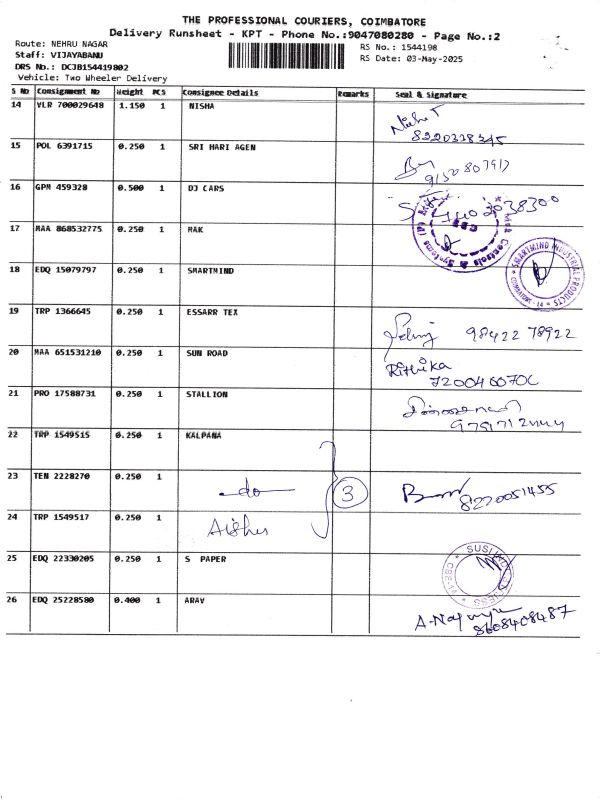 THE PROFESSIONAL COURIERS, COIMBATORE
Delivery Runsheet - KPT - Phone No.:9047080280 - Page No.:2
Route: NEHRU NAGAR
Staff: VIJAYABANU
DRS No.: DCJB154419802
Vehicle: Two Wheeler Delivery
RS No.: 1544198
RS Date: 03-May-2025
S NO Consignment No Weight PCS Consignee Details Remarks Seal & Signature
14 VLR 700029648 1.150 1 NISHA
8220328345
15 POL 6391715 0.250 1 SRI HARI AGEN
16 GPM 459328 0.500 1 DJ CARS
17 MAA 868532775 0.250 1 MAK
18 EDQ 15079797 0.250 1 SMARTMIND
SMARTMIND INDUSTRIAL PRODUCTS
19 TRP 1366645 0.250 1 ESSARR TEX
98422 78922
20 MAA 651531210 0.250 1 SUN ROAD
Rithika
21 PRO 17588731 0.250 1 STALLION
22 TRP 1549515 0.250 1 KALPANA
23 TEN 2228270 0.250 1 do 3
8220051455
24 TRP 1549517 0.250 1
25 EDQ 22330205 0.250 1 S PAPER
26 EDQ 25228580 0.400 1 ARAV
8608408487